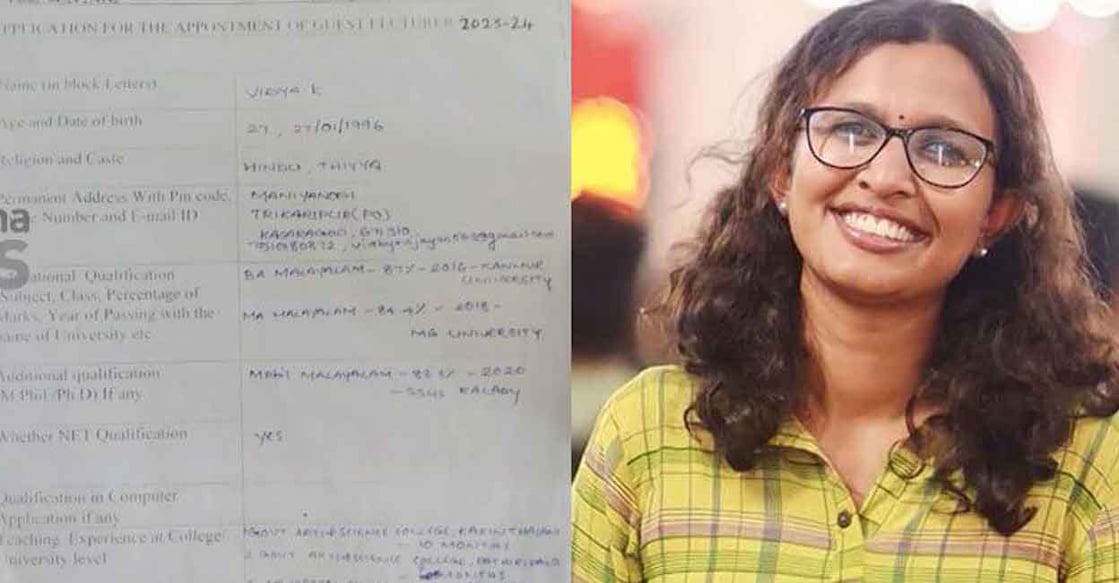 PPLICATION FOR THE APPOINTMENT OF GUEST LECTURER 2023-24
Name (in block Letters)
VIDYA K
Age and Date of birth
27, 27/01/1996
Religion and Caste
HINDU, THIYYA
Permanent Address With Pin code,
Number and E-mail ID
MANIYANODI
TRIKARIPUR (PO)
KASARAGOD, 671310
na
S
ational Qualification
Subject, Class, Percentage of
Marks, Year of Passing with the
name of University etc
BA MALAYALAM - 87% - 2016 - KANNUR
UNIVERSITY
MA MALAYALAM - 2018 -
MG UNIVERSITY
Additional qualification
(M Phil /Ph D) If any
MPhil MALAYALAM - 2020
- SSUS KALADY
Whether NET Qualification
yes
Qualification in Computer
Application if any
Teaching Experience at College/
University level
GOVT ARTS & SCIENCE COLLEGE, KARINTHALAM
10 MONTHS
2 GOVT ARTS & SCIENCE COLLEGE,
MONTHS